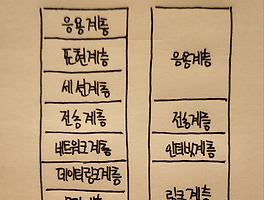 응용계층
표현계층
세션계층
전송계층
네트워크계층
데이터링크계층
응용계층
전송계층
인터넷계층
링크계층